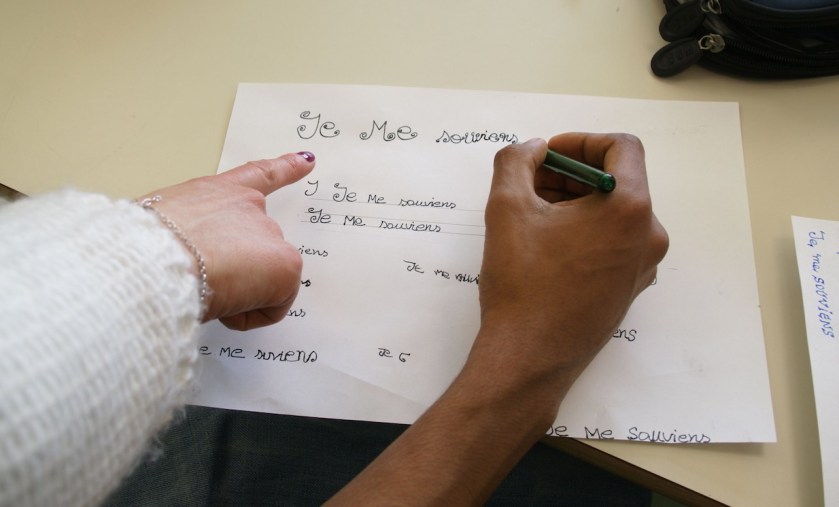 Je Me souviens
J Je Me souviens
Je Me souviens
iens
Je me souvi
ns
ens
e Me suviens
Je
Je Me Souviens
Je me souviens